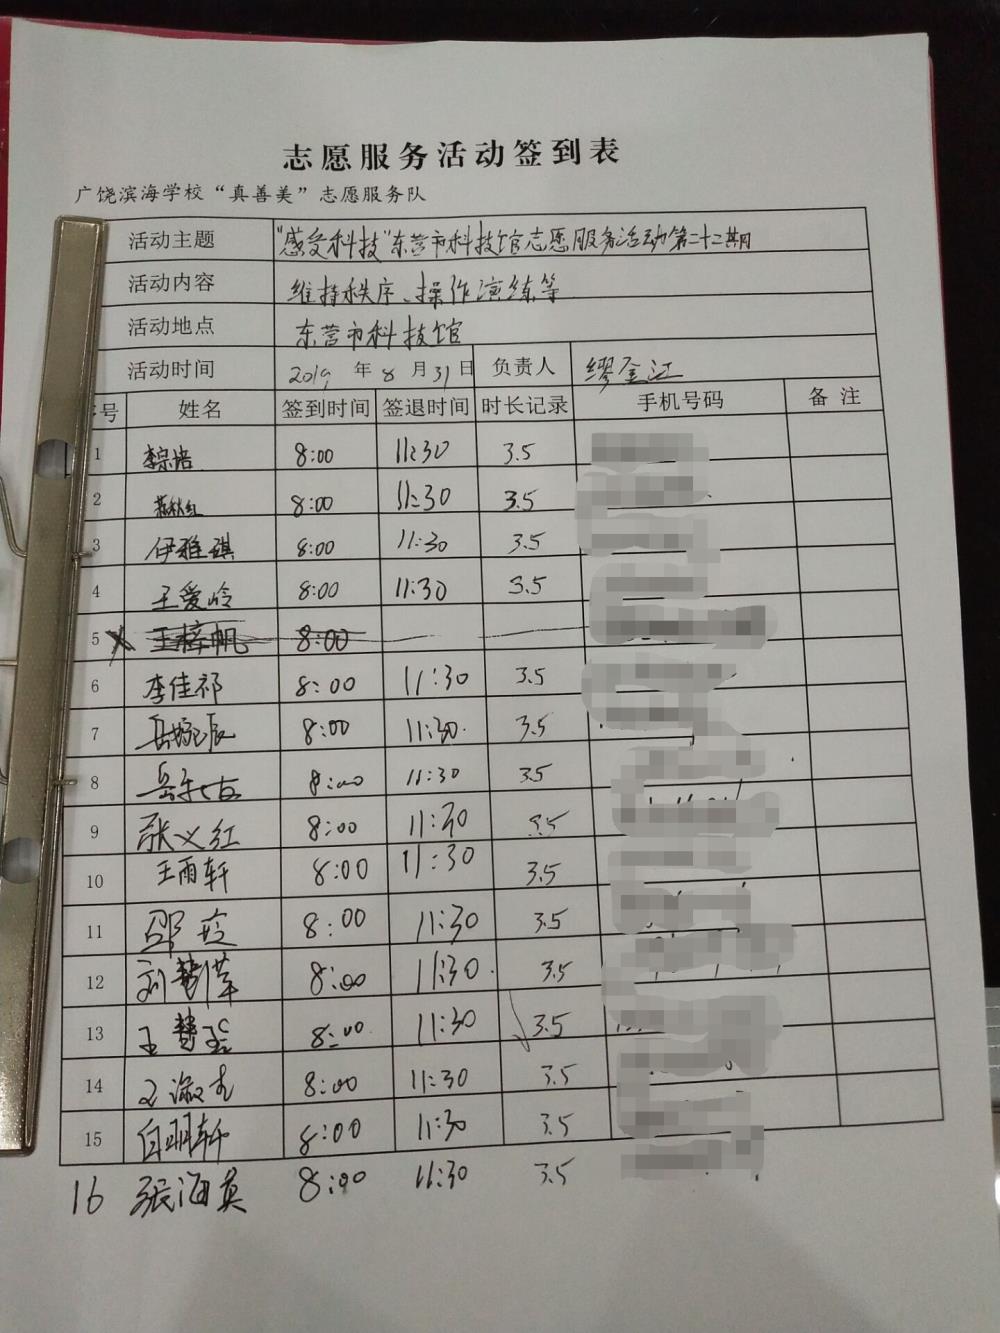 志愿服务活动签到表
广饶滨海学校“真善美”志愿服务队
活动主题 “感受科技”东营市科技馆志愿服务活动第二十二期
活动内容 维持秩序、操作演练等
活动地点 东营市科技馆
活动时间 2019 年 8 月 31 日 负责人 缪金江
序号 姓名 签到时间 签退时间 时长记录 手机号码 备注
1 8:00 11:30 3.5
2 8:00 11:30 3.5
3 伊雅琪 8:00 11:30 3.5
4 王爱岭 8:00 11:30 3.5
5 王梓帆 8:00
6 李佳祁 8:00 11:30 3.5
7 岳婉辰 8:00 11:30 3.5
8 8:00 11:30 3.5
9 张义红 8:00 11:30 3.5
10 王雨轩 8:00 11:30 3.5
11 8:00 11:30 3.5
12 8:00 11:30 3.5
13 8:00 11:30 3.5
14 8:00 11:30 3.5
15 8:00 11:30 3.5
16 张海真 8:00 11:30 3.5